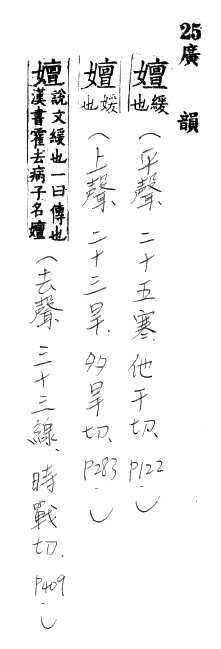 25廣韻
嬗緩也（平聲、二十五寒、他干切、P122.）
嬗媛也（上聲、二十三旱、多旱切、P283.）
嬗說文緩也一曰傳也漢書霍去病子名嬗（去聲、三十三線、時戰切、P409.）